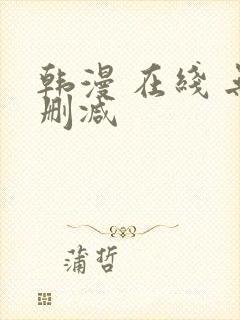 韩漫 在线
删减
蒲哲